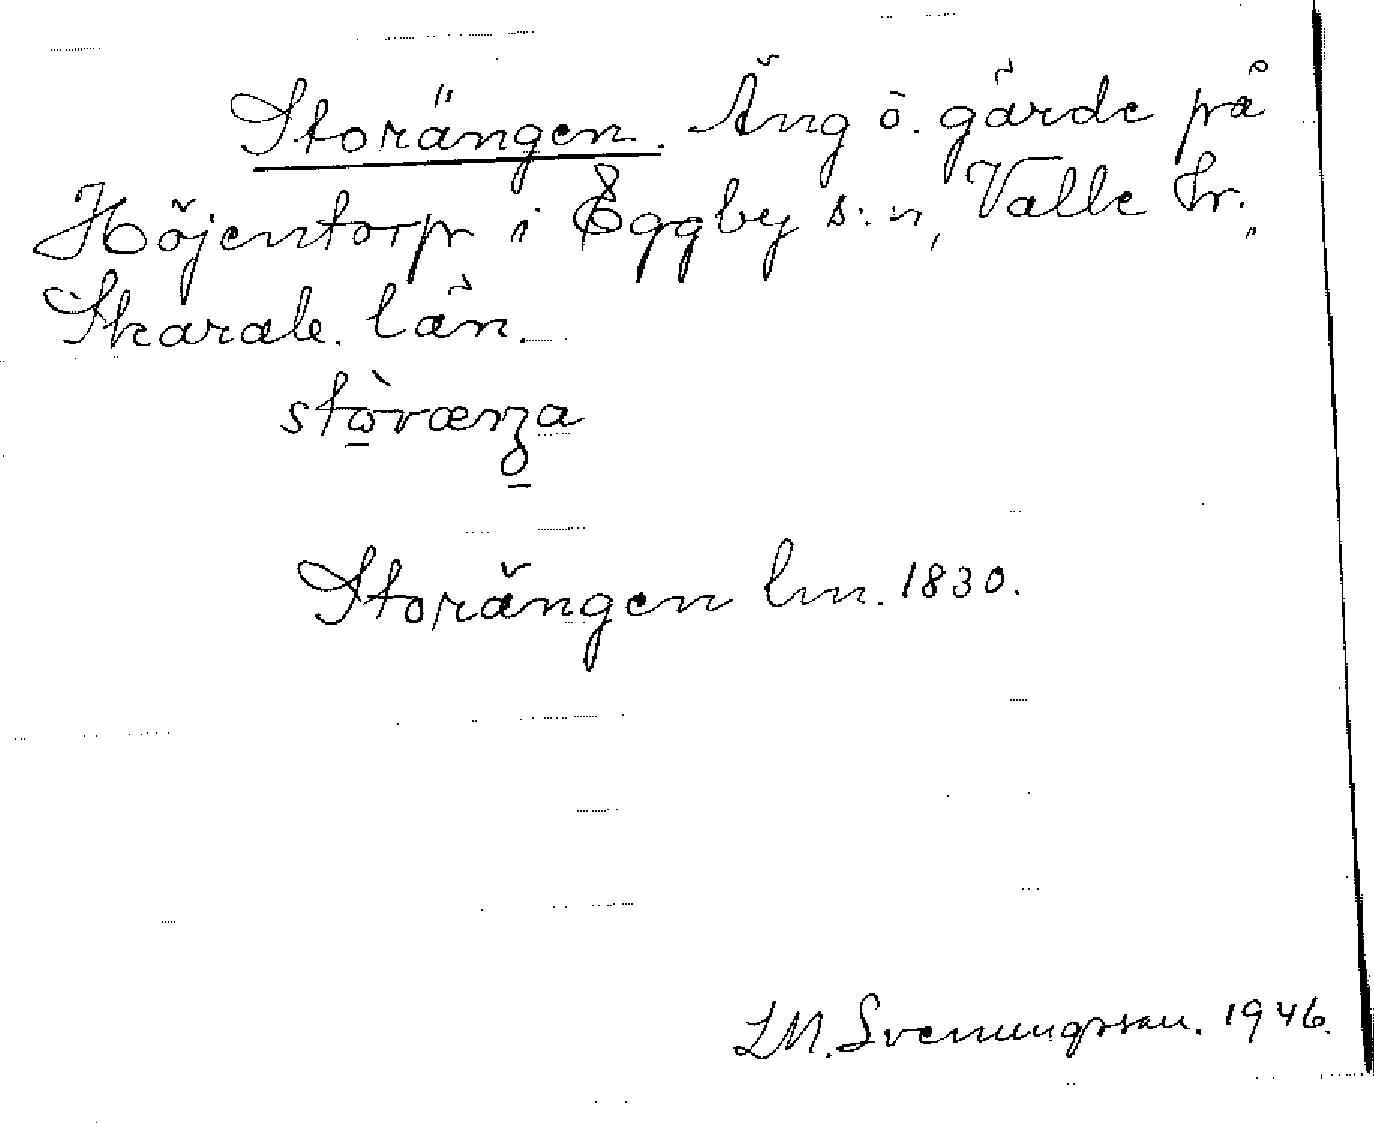 Storängen. Äng ö. gärde på
Höjentorp i Eggby s:n, Valle hr.,
Skarab. län.
Storängen lm. 1830.
S.M. Svenungsson. 1946.